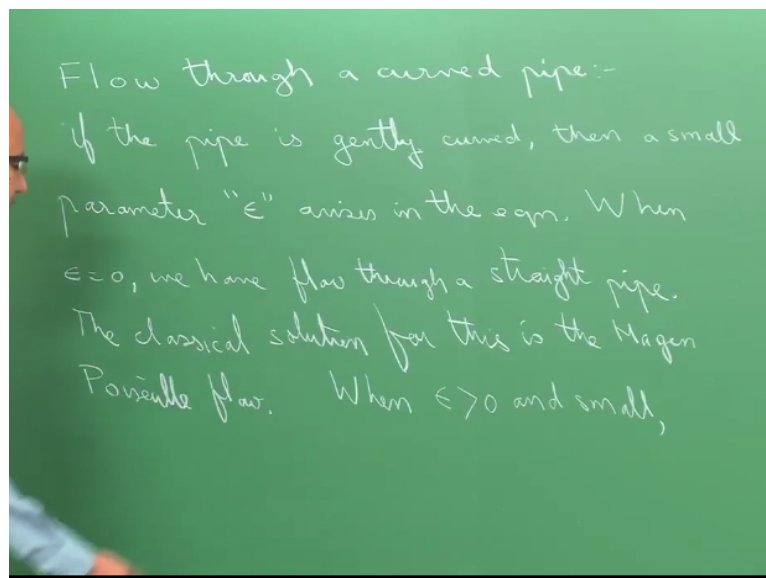 Flow through a curved pipe:-
if the pipe is gently curved, then a small
parameter "ϵ" arises in the eqn. When
ϵ=0, we have flow through a straight pipe.
The classical solution for this is the Hagen
Poiseulle flow. When ϵ>0 and small,